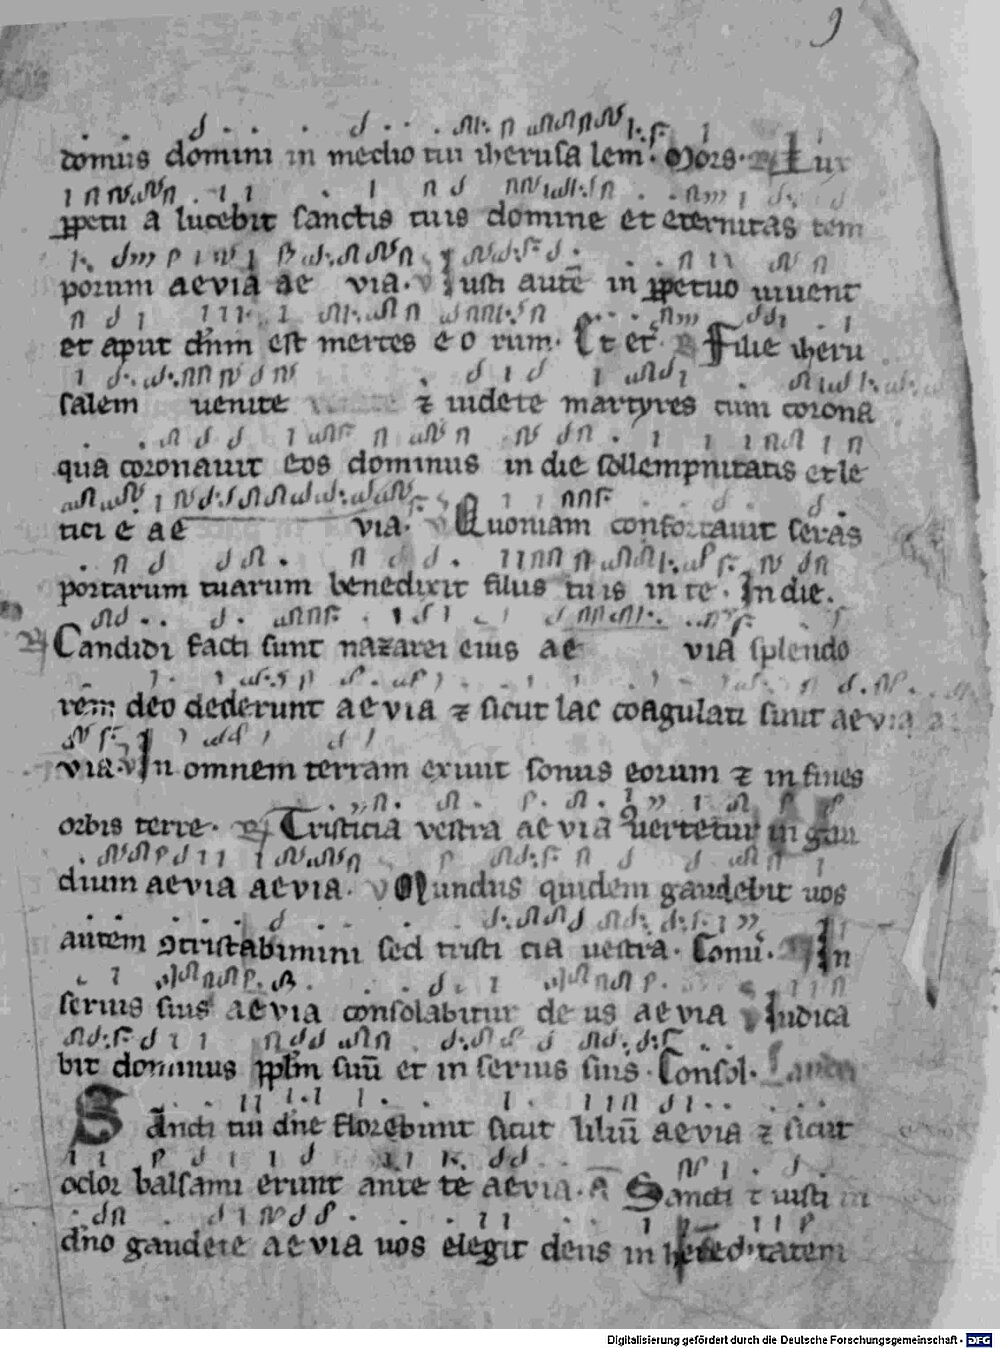 9
domus domini in medio tui iherusalem. Mors. ℟ Lux
ꝑpetua lucebit sanctis tuis domine et eternitas tem
porum aevia ae via. V Iusti autē in ꝑpetuo uiuent
et aput dn̄m est merces eorum. Et et̄. ℟ Filie iheru
salem uenite ⁊ uidete martyres cum corona
qua coronauit eos dominus in die sollempnitatis et le
ticie ae via. V Quoniam confortauit seras
portarum tuarum benedixit filiis tuis in te. In die.
℟ Candidi facti sunt nazarei eius ae via splendo
rem deo dederunt aevia ⁊ sicut lac coagulati sunt aevia a
via. V In omnem terram exiuit sonus eorum ⁊ in fines
orbis terre. ℟ Tristicia vestra aevia 9uertetur in gau
dium aevia aevia. V Mundus quidem gaudebit uos
autem 9tristabimini sed tristicia uestra. Conū. In
seruis suis aevia consolabitur deus aevia V Iudica
bit dominus ppl̄m suū et in seruis suis. Consol.
Sancti tui dn̄e florebunt sicut liliū aevia ⁊ sicut
odor balsami erunt ante te aevia. A Sancti ⁊ iusti in
dn̄o gaudete aevia uos elegit deus in hereditatem
Digitalisierung gefördert durch die Deutsche Forschungsgemeinschaft - DFG